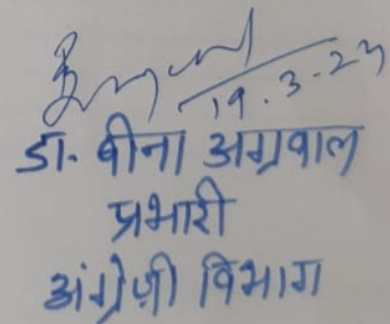 19.3.23
डा. बीना अग्रवाल
प्रभारी
अंग्रेज़ी विभाग